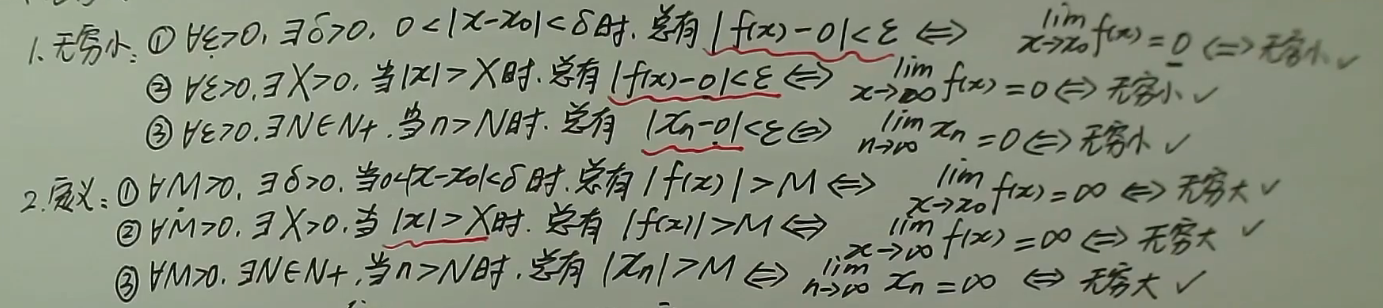 1. 无穷小: ① ∀ε>0, ∃δ>0, 0<|x-x₀|<δ时, 总有 |f(x)-0|<ε ⇔ lim x→x₀ f(x)=0 ⇔ 无穷小 ✓
② ∀ε>0, ∃X>0, 当|x|>X时, 总有 |f(x)-0|<ε ⇔ lim x→∞ f(x)=0 ⇔ 无穷小 ✓
③ ∀ε>0, ∃N∈N+, 当n>N时, 总有 |xₙ-0|<ε ⇔ lim n→∞ xₙ=0 ⇔ 无穷小 ✓
2. 定义: ① ∀M>0, ∃δ>0, 当0<|x-x₀|<δ时, 总有 |f(x)|>M ⇔ lim x→x₀ f(x)=∞ ⇔ 无穷大 ✓
② ∀M>0, ∃X>0, 当 |x|>X时, 总有 |f(x)|>M ⇔ lim x→∞ f(x)=∞ ⇔ 无穷大 ✓
③ ∀M>0, ∃N∈N+, 当n>N时, 总有 |xₙ|>M ⇔ lim n→∞ xₙ=∞ ⇔ 无穷大 ✓